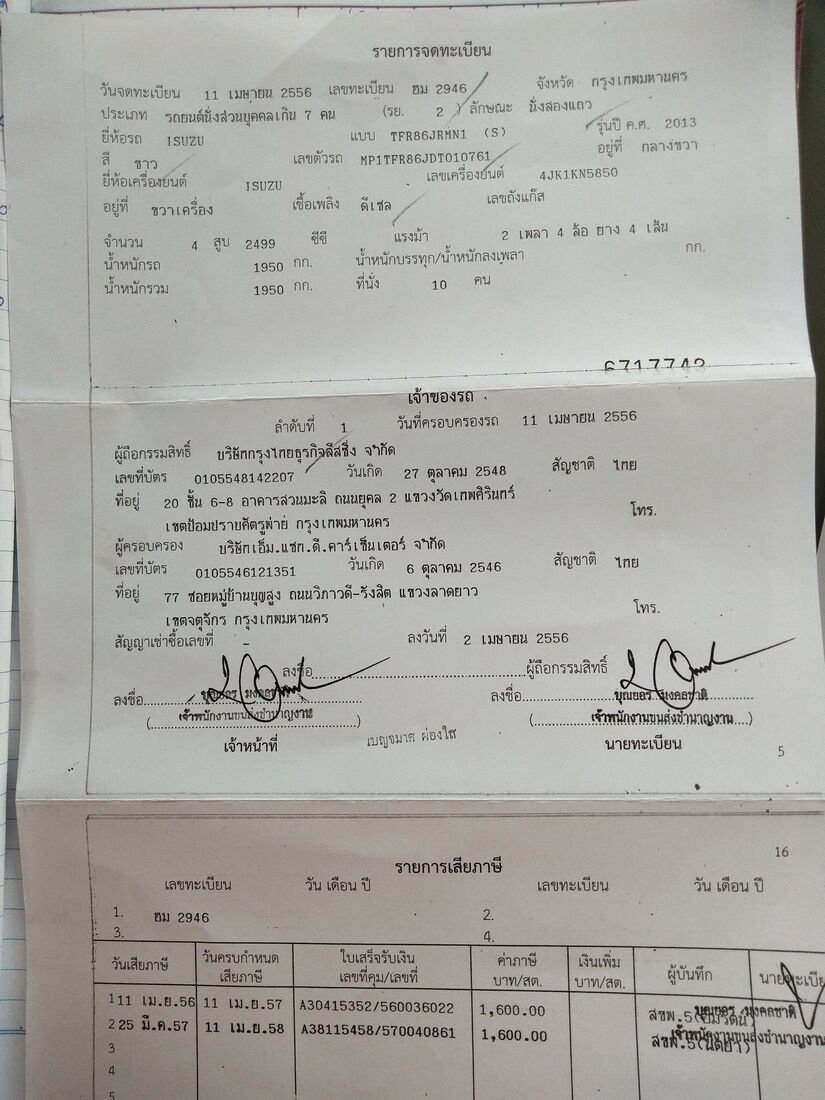 รายการจดทะเบียน
วันจดทะเบียน 11 เมษายน 2556 เลขทะเบียน ฮม 2946 จังหวัด กรุงเทพมหานคร
ประเภท รถยนต์นั่งส่วนบุคคลเกิน 7 คน (รย. 2 ) ลักษณะ นั่งสองแถว
ยี่ห้อรถ ISUZU แบบ TFR86JRMN1 (S) รุ่นปี ค.ศ. 2013
สี ขาว เลขตัวรถ MP1TFR86JDT010761 อยู่ที่ กลางขวา
ยี่ห้อเครื่องยนต์ ISUZU เลขเครื่องยนต์ 4JK1KN5850
อยู่ที่ ขวาเครื่อง เชื้อเพลิง ดีเซล เลขถังแก๊ส
จำนวน 4 สูบ 2499 ซีซี แรงม้า 2 เพลา 4 ล้อ ยาง 4 เส้น
น้ำหนักรถ 1950 กก. น้ำหนักบรรทุก/น้ำหนักลงเพลา กก.
น้ำหนักรวม 1950 กก. ที่นั่ง 10 คน
6717743
เจ้าของรถ
ลำดับที่ 1 วันที่ครอบครองรถ 11 เมษายน 2556
ผู้ถือกรรมสิทธิ์ บริษัทกรุงไทยธุรกิจลีสซิ่ง จำกัด
เลขที่บัตร 0105548142207 วันเกิด 27 ตุลาคม 2548 สัญชาติ ไทย
ที่อยู่ 20 ชั้น 6-8 อาคารสวนมะลิ ถนนยุคล 2 แขวงวัดเทพศิรินทร์
เขตป้อมปราบศัตรูพ่าย กรุงเทพมหานคร โทร.
ผู้ครอบครอง บริษัทเอ็ม.แซท.ดี.คาร์เซ็นเตอร์ จำกัด
เลขที่บัตร 0105546121351 วันเกิด 6 ตุลาคม 2546 สัญชาติ ไทย
ที่อยู่ 77 ซอยหมู่บ้านบุญสูง ถนนวิภาวดี-รังสิต แขวงลาดยาว
เขตจตุจักร กรุงเทพมหานคร โทร.
สัญญาเช่าซื้อเลขที่ - ลงวันที่ 2 เมษายน 2556
ลงชื่อ ผู้ถือกรรมสิทธิ์
ลงชื่อ ลงชื่อ บุณยอร มงคลชาติ
(เจ้าพนักงานขนส่งชำนาญงาน) (เจ้าพนักงานขนส่งชำนาญงาน)
เจ้าหน้าที่ เบญจมาศ ผ่องใส นายทะเบียน
5
16
รายการเสียภาษี
เลขทะเบียน วัน เดือน ปี เลขทะเบียน วัน เดือน ปี
1. ฮม 2946 2.
3. 4.
วันเสียภาษี วันครบกำหนดเสียภาษี ใบเสร็จรับเงิน เลขที่คุม/เลขที่ ค่าภาษี บาท/สต. เงินเพิ่ม บาท/สต. ผู้บันทึก นายทะเบีย
1 11 เม.ย.56 11 เม.ย.57 A30415352/560036022 1,600.00 สขพ.5 บุณยอร มงคลชาติ
2 25 มี.ค.57 11 เม.ย.58 A38115458/570040861 1,600.00 สขพ.5 เจ้าพนักงานขนส่งชำนาญงาน
3
4
5